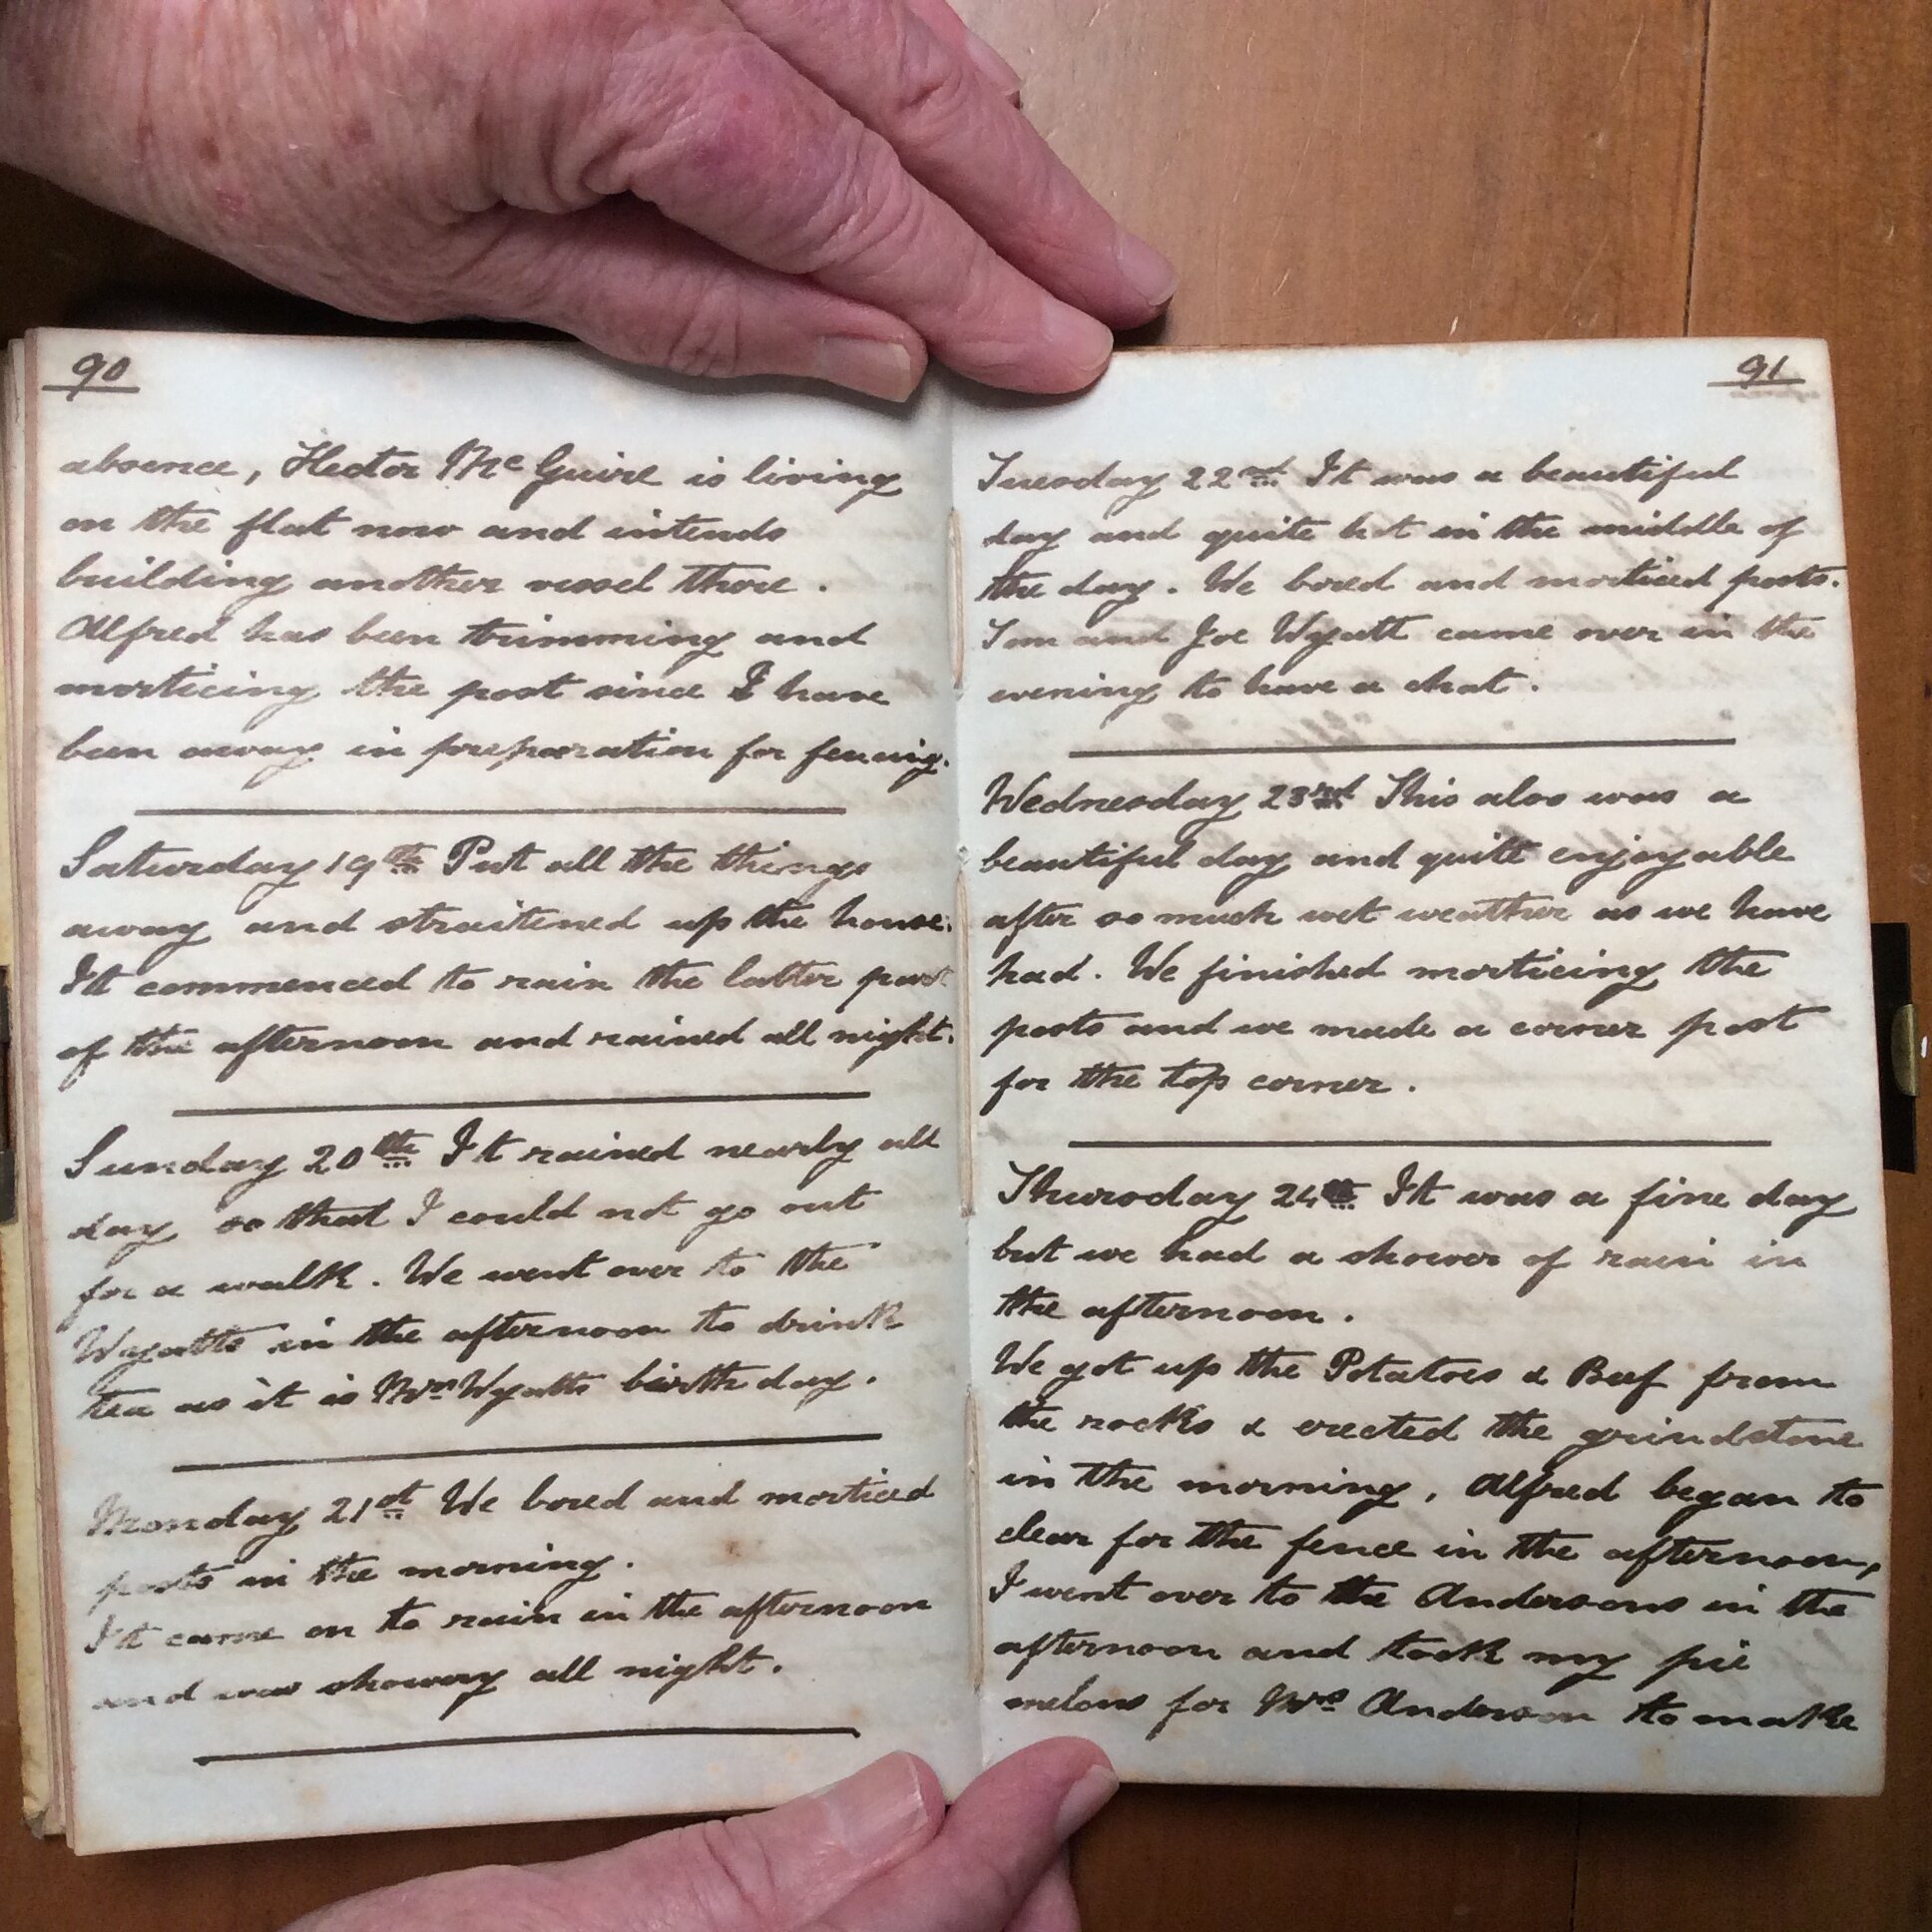 90
absence, Hector McGuire is living
on the flat now and intends
building another vessel there.
Alfred has been trimming and
morticing the post since I have
been away in preparation for fencing.
Saturday 19th Put all the things
away and straitened up the house.
It commenced to rain the latter part
of the afternoon and rained all night.
Sunday 20th It rained nearly all
day so that I could not go out
for a walk. We went over to the
Wyatts in the afternoon to drink
tea as it is Mrs Wyatts birthday.
Monday 21st We bored and morticed
posts in the morning.
It came on to rain in the afternoon
and was showery all night.
91
Tuesday 22nd It was a beautiful
day and quite hot in the middle of
the day. We bored and morticed posts.
Tom and Joe Wyatt came over in the
evening to have a chat.
Wednesday 23rd This also was a
beautiful day and quite enjoyable
after so much wet weather as we have
had. We finished morticing the
posts and we made a corner post
for the top corner.
Thursday 24th It was a fine day
but we had a shower of rain in
the afternoon.
We got up the Potatoes & Beef from
the rocks & erected the grindstone
in the morning, Alfred began to
clear for the fence in the afternoon,
I went over to the Andersons in the
afternoon and took my pie
melons for Mrs Anderson to make